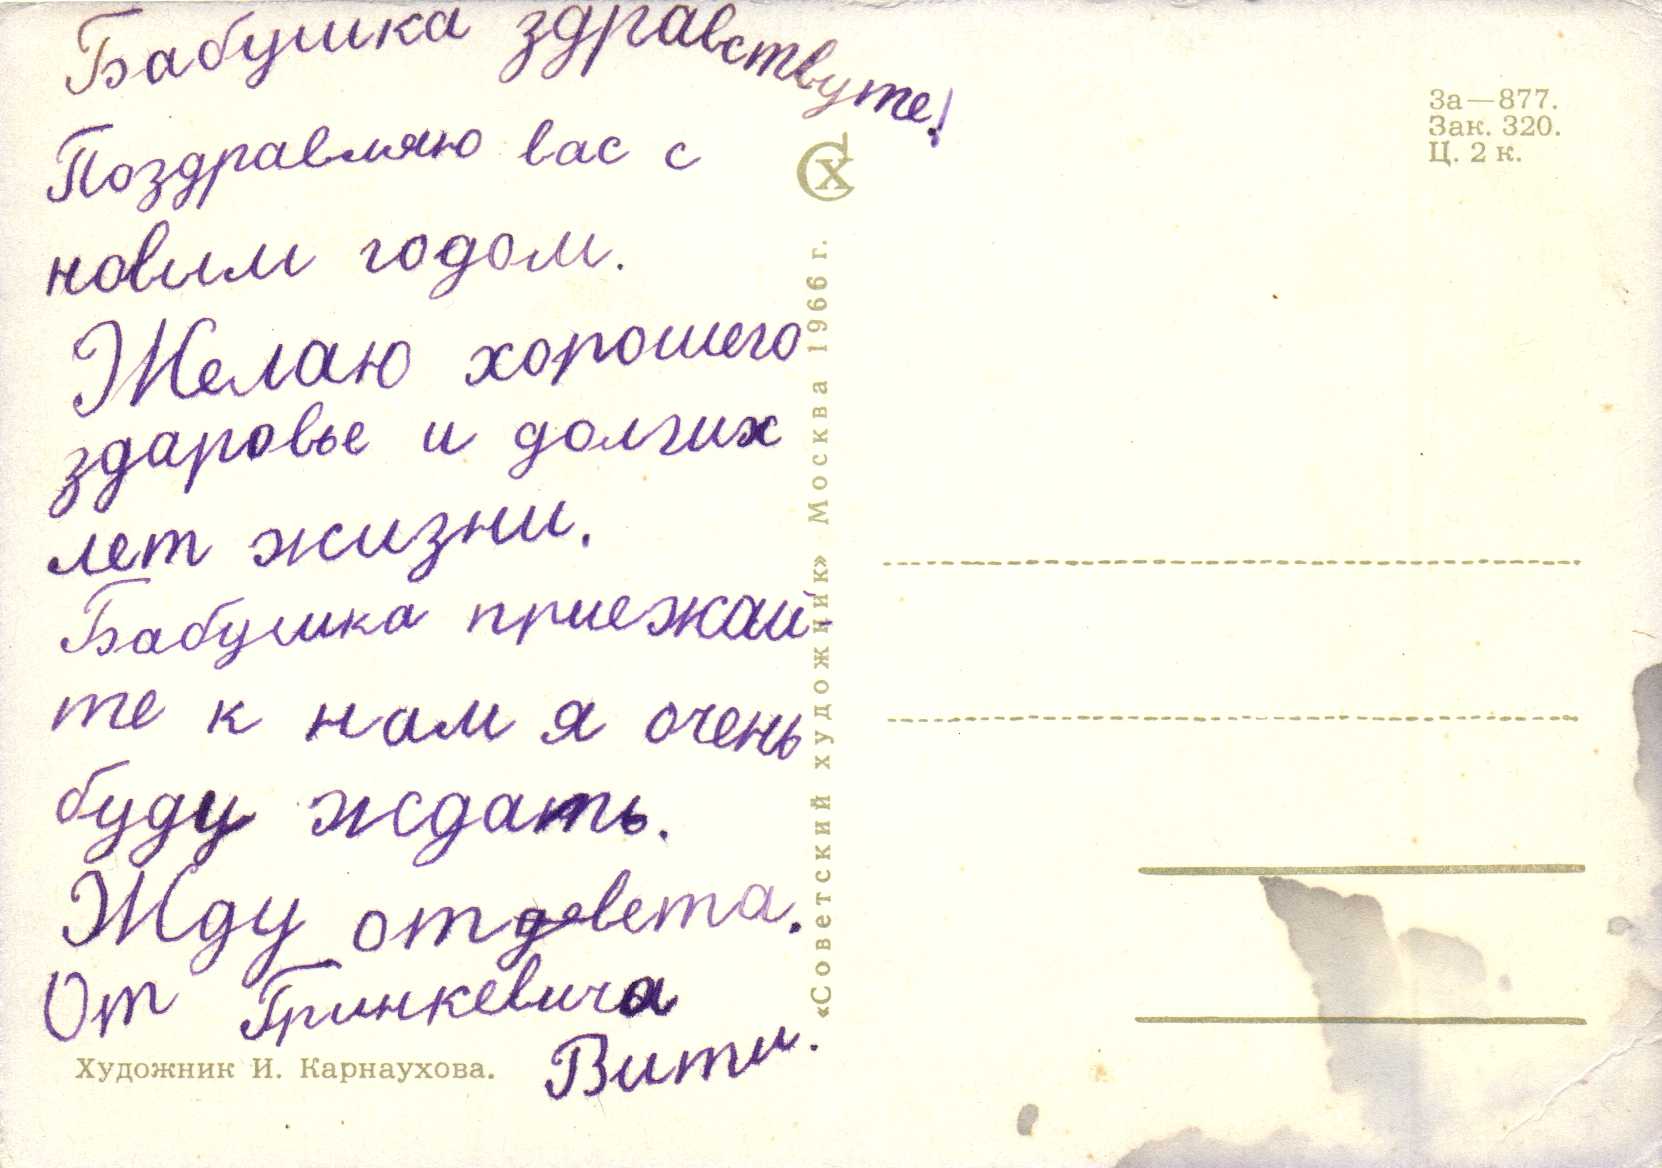 Бабушка здравствуте!
Поздравляю вас с
новым годом.
Желаю хорошего
здаровье и долгих
лет жизни.
Бабушка приежай-
те к нам я очень
буду ждать.
Жду ответа.
От Гринкевича
Вити.
Художник И. Карнаухова.
«Советский художник» Москва 1966 г.
СХ
За—877.
Зак. 320.
Ц. 2 к.